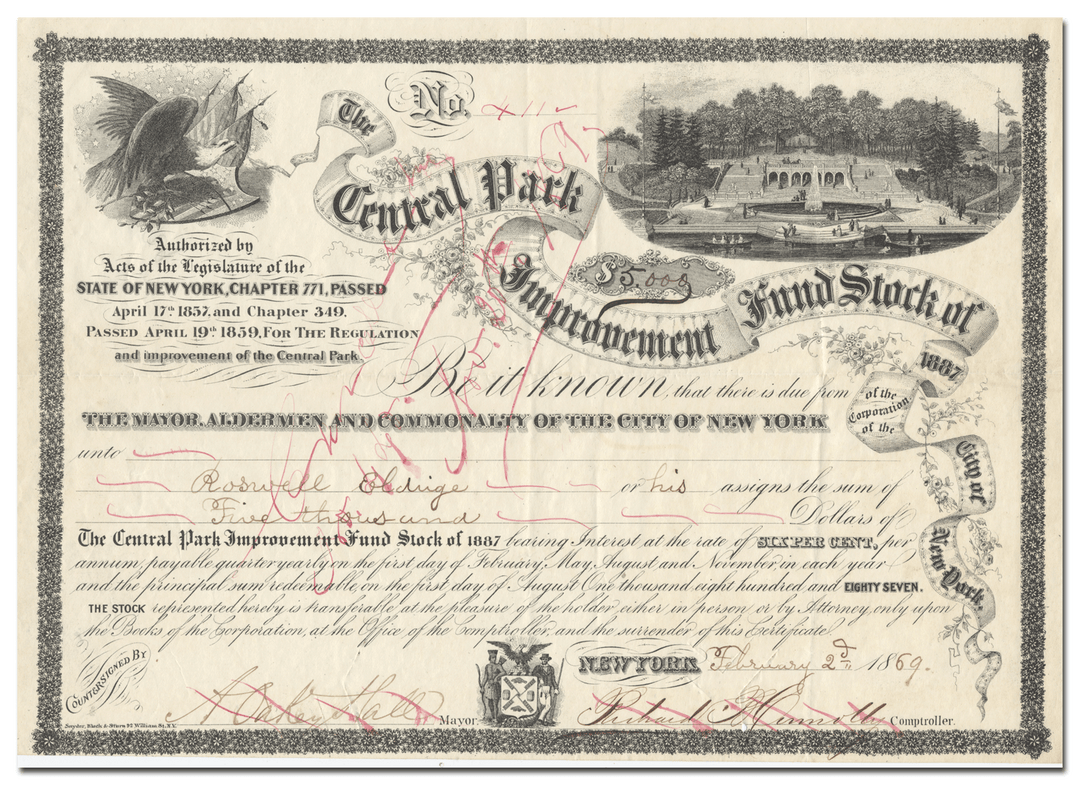 No. 411
The
Central Park
Improvement
Fund Stock of
1887
of the
Corporation
of the
City of
New York.
$5.000
Authorized by
Acts of the Legislature of the
STATE OF NEW YORK, CHAPTER 771, PASSED
April 17th 1857. and Chapter 349.
PASSED APRIL 19th 1859. FOR THE REGULATION
and improvement of the Central Park.
Be it known, that there is due from
THE MAYOR, ALDERMEN AND COMMONALTY OF THE CITY OF NEW YORK
unto
Roswell Eldrige or his assigns the sum of
Five thousand Dollars of
The Central Park Improvement Fund Stock of 1887 bearing Interest at the rate of SIX PER CENT, per
annum, payable quarter yearly on the first day of February, May, August and November in each year
and the principal sum redeemable, on the first day of August One thousand eight hundred and EIGHTY SEVEN.
THE STOCK represented hereby is transferable at the pleasure of the holder either in person or by Attorney, only upon
the Books of the Corporation, at the Office of the Comptroller, and the surrender of this Certificate.
COUNTERSIGNED BY
NEW YORK February 2d 1869.
A Oakey Hall Mayor.
Richard B Connolly Comptroller.
Snyder, Black & Sturn 92 William St. N.Y.